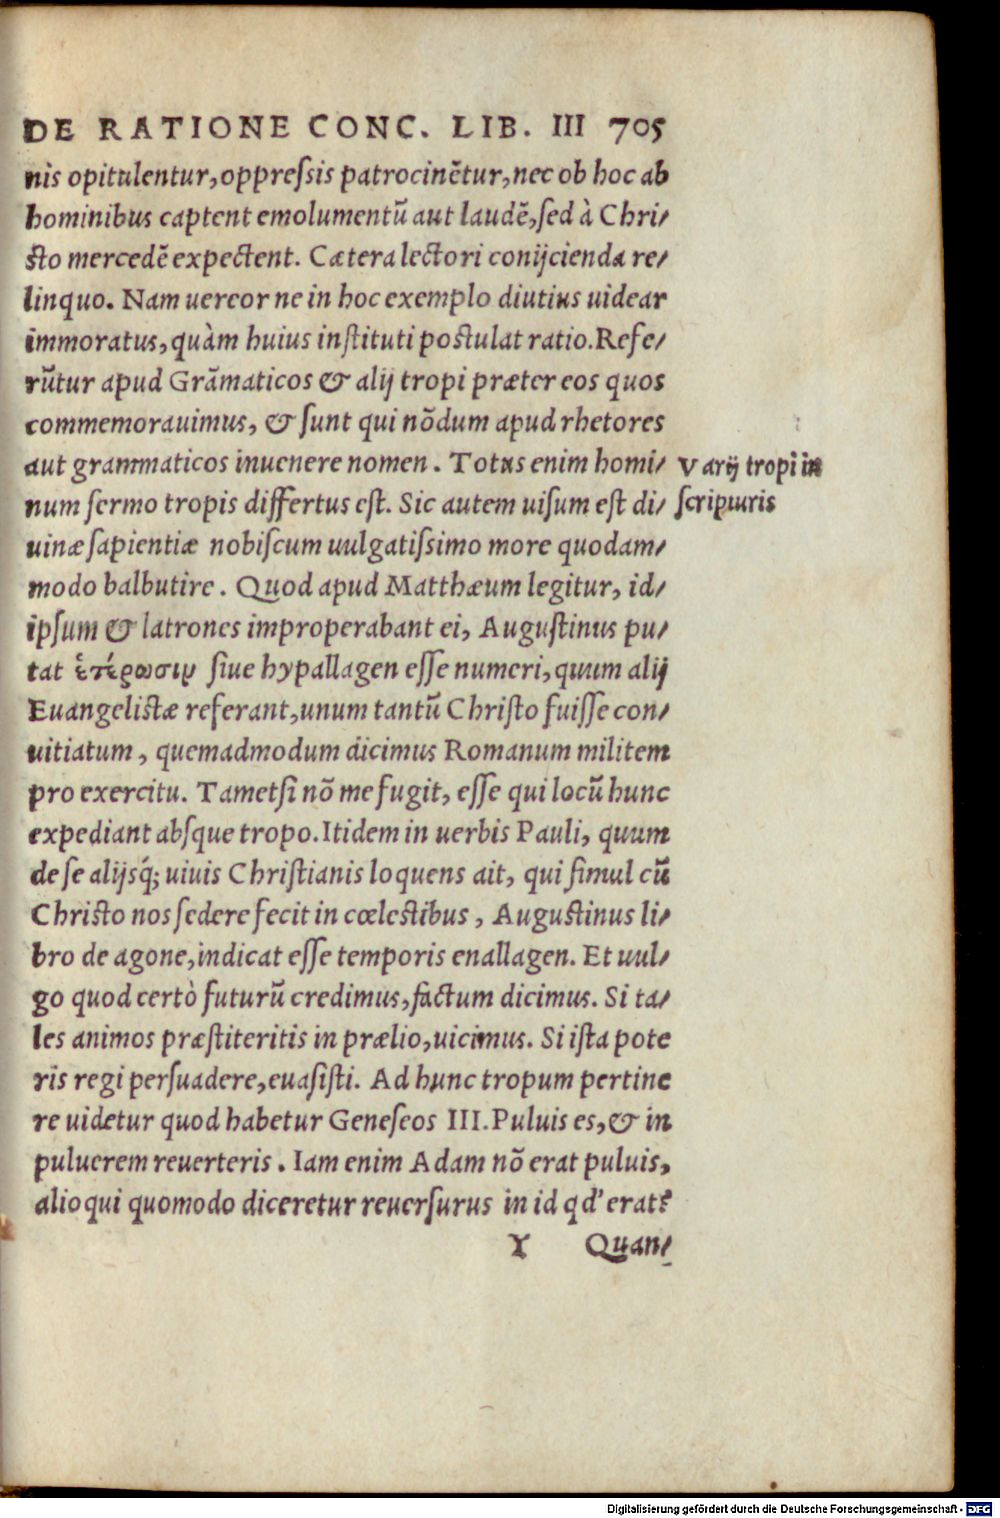 DE RATIONE CONC. LIB. III 705
nis opitulentur, oppreſsis patrocinẽtur, nec ob hoc ab
hominibus captent emolumentũ aut laudẽ, ſed à Chri/
ſto mercedẽ expectent. Cætera lectori conijcienda re/
linquo. Nam uereor ne in hoc exemplo diutius uidear
immoratus, quàm huius inſtituti poſtulat ratio. Refe/
rũtur apud Grãmaticos & alij tropi præter eos quos
commemorauimus, & ſunt qui nõdum apud rhetores
aut grammaticos inuenere nomen. Totus enim homi/
Varij tropi in
num ſermo tropis differtus eſt. Sic autem uiſum eſt di/
ſcripturis
uinæ ſapientiæ nobiſcum uulgatiſsimo more quodam/
modo balbutire. Quod apud Matthæum legitur, id/
ipſum & latrones improperabant ei, Auguſtinus pu/
tat ἑτέρωσιν ſiue hypallagen eſſe numeri, quum alij
Euangeliſtæ referant, unum tantũ Chriſto fuiſſe con/
uitiatum, quemadmodum dicimus Romanum militem
pro exercitu. Tametſi nõ me fugit, eſſe qui locũ hunc
expediant abſque tropo. Itidem in uerbis Pauli, quum
de ſe alijsq́; uiuis Chriſtianis loquens ait, qui ſimul cũ
Chriſto nos ſedere fecit in cœleſtibus, Auguſtinus li/
bro de agone, indicat eſſe temporis enallagen. Et uul/
go quod certò futurũ credimus, factum dicimus. Si ta/
les animos præſtiteritis in prælio, uicimus. Si iſta pote
ris regi perſuadere, euaſiſti. Ad hunc tropum pertine
re uidetur quod habetur Geneſeos III. Puluis es, & in
puluerem reuerteris. Iam enim Adam nõ erat puluis,
alioqui quomodo diceretur reuerſurus in id qd' erat?
Y Quan/
Digitalisierung gefördert durch die Deutsche Forschungsgemeinschaft - DFG